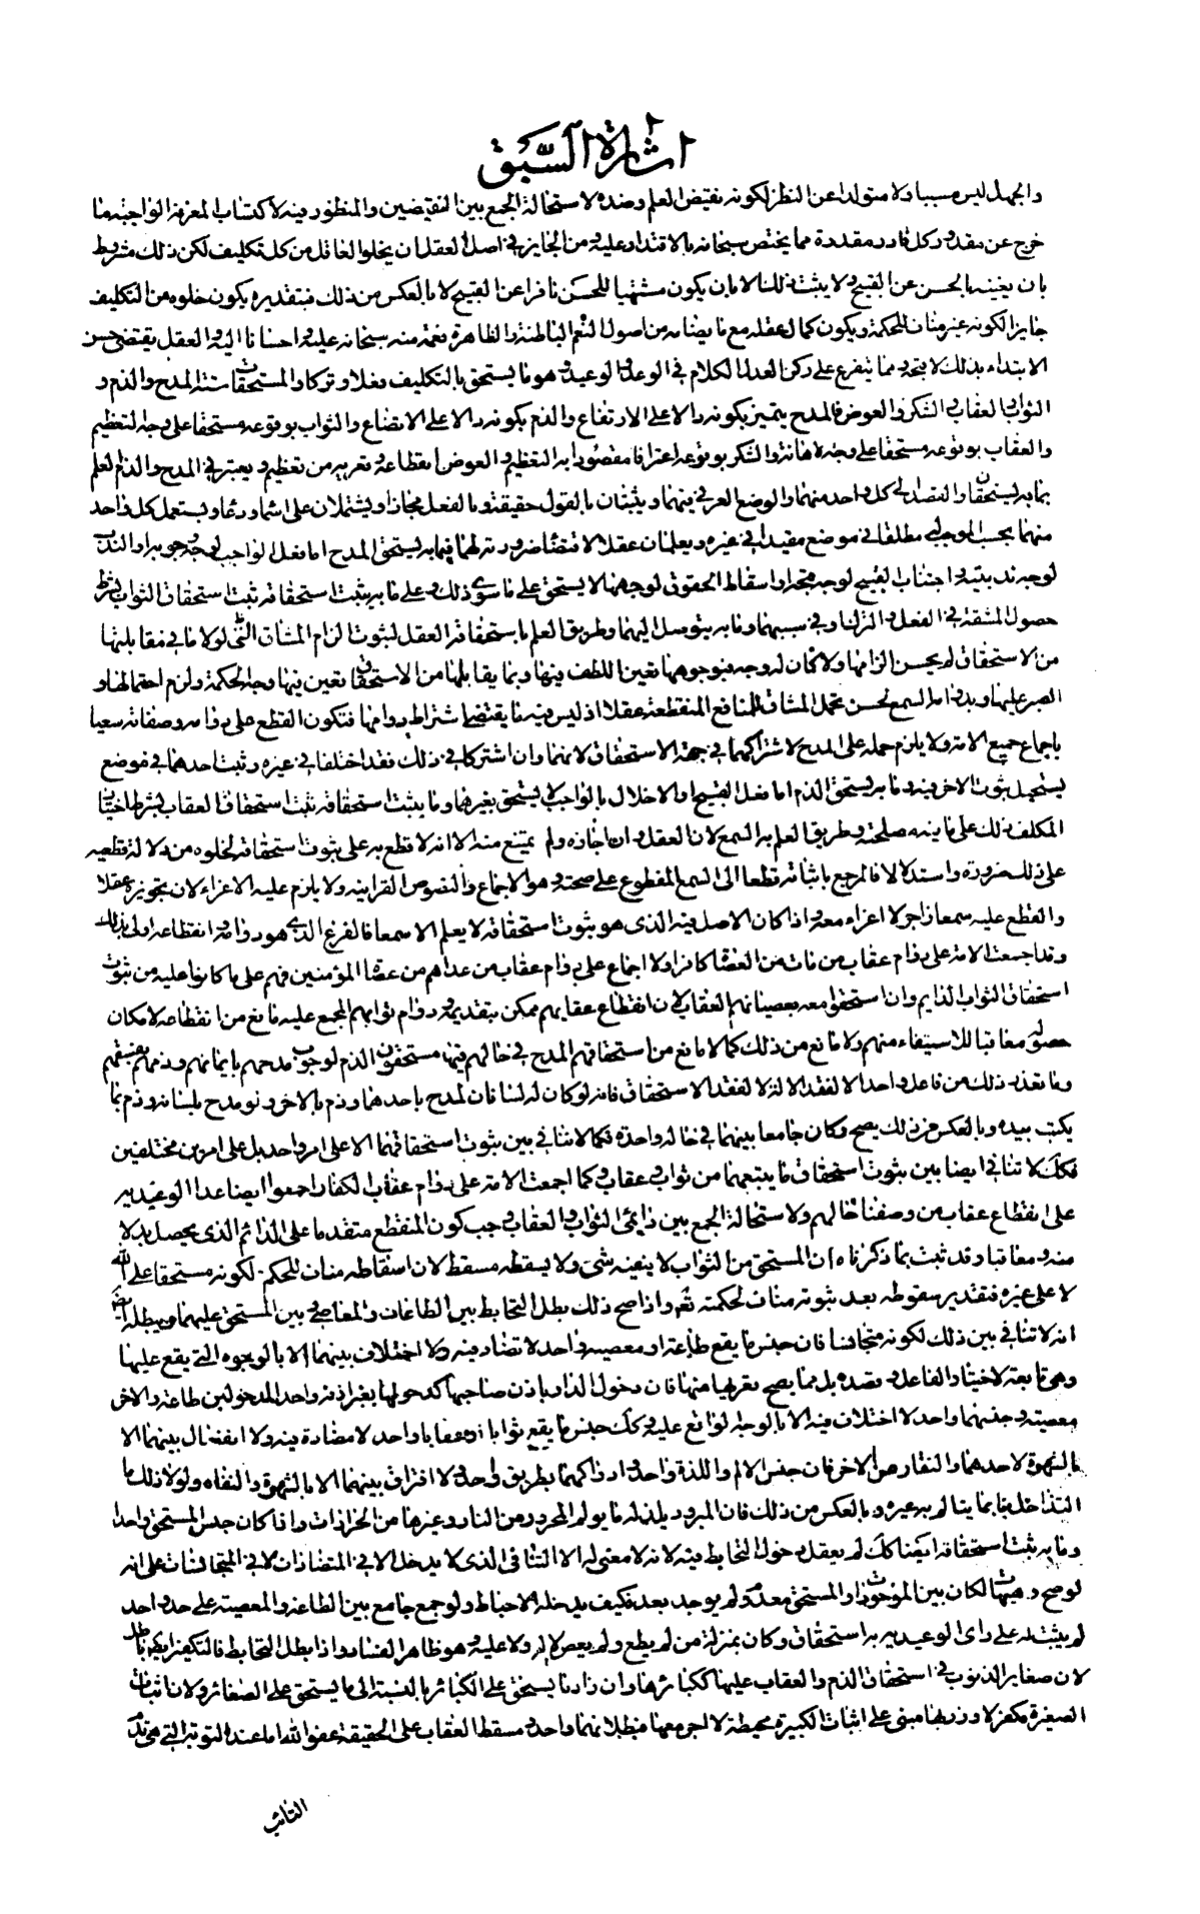 اشارة السبق
والجهل ليس مسببا ولا متولدا عن النظر لكونه نقيض العلم وضده لاستحالة الجمع بين النقيضين والمنظور فيه لاكتساب المعرفة الواجبة ما
خرج عن مقدور كل قادر مقدرة مما يختص سبحانه بالاقتدار عليه ومن الجايز في اصل العقل ان يخلوا العاقل من كل تكليف لكن ذلك مشروط
بان يغنيه بالحسن عن القبيح ولا يثبت ذلك الا بان يكون مشتهيا للحسن نافرا عن القبيح لا بالعكس من ذلك فبتقديره يكون خلوه من التكليف
جايزا لكونه غير مناف للحكمة ويكون كمال عقله مع ما يضامه من اصول النعم الباطنة والظاهرة نعمة منه سبحانه عليه واحسانا اليه والعقل يقتضى حسن
الابتداء بذلك لا قبحه ومما يتفرع على ركن العدل الكلام في الوعد والوعيد وهو ما يستحق بالتكليف فعلا وتركا والمستحقات ستة المدح والذم و
الثواب والعقاب والشكر والعوض فالمدح يتميز بكونه دالا على الارتفاع والذم بكونه دالا على الاتضاع والثواب بوقوعه مستحقا على وجه التعظيم
والعقاب بوقوعه مستحقا على وجه الاهانة والشكر بوقوعه اعترافا مقصودا به التعظيم والعوض بانقطاعه وتعريه من تعظيم ويعتبر في المدح والذم العلم
بما به يستحقان والقصد الى كل واحد منهما والوضع العرفي فيهما ويثبتان بالقول حقيقة وبالفعل مجازا ويشتملان على اسماء ودعاء ويستعمل كل واحد
منهما بحسب الموجب له مطلقا في موضع مقيدا في غيره ويعلمان عقلا لاقتضاء ضرورته لهما فما به يستحق المدح اما فعل الواجب لوجه وجوبه او الندب
لوجه ندبيته او اجتناب القبيح لوجه قبحه او اسقاط الحقوق لوجهها لا يستحق على ما سوى ذلك وعلى ما به يثبت استحقاقه ثبت استحقاق الثواب بشرط
حصول المشقة في الفعل والترك او في سببهما وما به يتوصل اليهما وطريق العلم باستحقاقه العقل لثبوت الزام المشاق التي لولا ما في مقابلتها
من الاستحقاق لم يحسن الزامها ولا كان له وجه فبوجوهها تعين اللطف فيها وبما يقابلها من الاستحقاق تعين فيها وجه الحكمة ولزم احتمالها و
الصبر عليها وبدوامه السمع لحسن تحمل المشاق للمنافع المنقطعة عقلا اذ ليس فيه ما يقتضى اشتراط دوامها فتكون القطع على دوامه وصفاته سمعيا
باجماع جميع الامة ولا يلزم حمله على المدح لاشتراكهما في جهة الاستحقاق لانهما وان اشتركا في ذلك فقد اختلفا في غيره وثبت احدهما في موضع
يستحيل ثبوت الاخر فيه وما به يستحق الذم اما فعل القبيح او الاخلال بالواجب لا يستحق بغيرهما وما يثبت استحقاقه ثبت استحقاق العقاب بشرط اختيار
المكلف ذلك على ما فيه مصلحته وطريق العلم به السمع لان العقل وان اجازه ولم يمتنع منه الا انه لا قطع به على ثبوت استحقاقه لخلوه من دلالة قطعيه
على ذلك ضرورة واستدلالا فالمرجع باثباته قطعا الى السمع المقطوع على صحته وهو الاجماع والنصوص القرانيه ولا يلزم عليه الاغراء لان تجويزه عقلا
والقطع عليه سمعا زاجر لا اغراء معه واذا كان الاصل فيه الذى هو ثبوت استحقاقه لا يعلم الا سمعا فالفرع الذى هو دوامه وانقطاعه اولى بذلك
وقد اجمعت الامة على دوام عقاب من مات من العصاة كافرا ولا اجماع على دوام عقاب من عداهم من عصاة المؤمنين فهم على ما كانوا عليه من ثبوت
استحقاق الثواب الدايم وان استحقوا معه بعصيانهم العقاب لان انقطاع عقابهم ممكن بتقديمه ودوام ثوابهم المجمع عليه مانع من انقطاعه لامكان
حصوله معاقبا للاستيفاء منهم ولا مانع من ذلك كما لا مانع من استحقاقهم المدح في حالهم فيها مستحقون الذم لوجوب مدحهم بايمانهم وذمهم بفسقهم
وما تعذر ذلك من فاعل واحد الا لفقد الالة لا لفقد الاستحقاق فانه لو كان له لسانان لمدح باحدهما وذم بالاخر ونو مدح بلسانه وذم بما
يكتب بيده وبالعكس من ذلك يصح وكان جامعا بينهما في حالة واحدة فكما لا تنافي بين ثبوت استحقاقهما الا على امر واحد بل على امرين مختلفين
فكك لا تنافي ايضا بين ثبوت استحقاق ما يتبعهما من ثواب وعقاب وكما اجمعت الامة على دوام عقاب الكفار اجمعوا ايضا عدا الوعيديه
على انقطاع عقاب من وصفنا حالهم ولاستحالة الجمع بين دائمى الثواب والعقاب وجب كون المنقطع متقدما على الدائم الذى يحصل بدلا
منه ومعاقبا وقد ثبت بما ذكرناه ان المستحق من الثواب لا يغيره شئ ولا يسقطه مسقط لان اسقاطه مناف للحكمة لكونه مستحقا على الله
لا على غيره فتقدير سقوطه بعد ثبوته مناف لحكمته تعم واذا صح ذلك بطل التحابط بين الطاعات والمعاصي وبين المستحق عليهما ويبطله ايضا
انه لا تنافي بين ذلك لكونه متجانسا فان جنس ما يقع طاعة او معصيه واحد لا تضاد فيه ولا اختلاف بينهما الا بالوجوه التي يقع عليها
وهي تابعة لاختيار الفاعل وقصده بل مما يصح تعريها منها فان دخول الدار باذن صاحبها كدخولها بغير اذنه واحد المدخولين طاعة والاخر
معصيته وجنسهما واحد لا اختلاف فيه الا بالوجه الواقع عليه وكك جنس ما يقع ثوابا او عقابا واحد لا مضادة فيه ولا انفصال بينهما الا
بالشهوة لاحدهما والنفار من الاخر فان جنس الالم واللذة واحد وادراكهما بطريق واحد ولا افتراق بينهما الا بالشهوة والنفاه ولولا ذلك ما
التذ احدنا بما يتالم به غيره وبالعكس من ذلك فان المبرود يلذ له ما يولم المحرور من النار وغيرها من الحرارات واذا كان جنس المستحق واحدا
وما به ثبت استحقاقه ايضا كك لم يعقل دخول التحابط فيه لانه لا معنى له الا التنافى الذى لا يدخل الا في المتضادات لا في المتجانسات على انه
لوصح وهيهات لكان بين الموجودات او المستحق معدوم ولم يوجد بعد فكيف يدخله الاحباط ولو جمع جامع بين الطاعة والمعصية على حد واحد
لم يثبت له على راى الوعيديه به استحقاق وكان بمنزلة من لم يطع ولم يعص لا له ولا عليه وهو ظاهر الفساد واذا بطل التحابط فالتكفير ايضا باطل
لان صغاير الذنوب في استحقاق الذم والعقاب عليها ككبائرها وان زاد ما يستحق على الكبائر بالنسبة الى ما يستحق على الصغائر ولان اثبات
الصغيرة مكفرة لا وزر لها مبنى على اثبات الكبيرة محبطة لا اجر معها فبطلانهما واحد ومسقط العقاب على الحقيقة عفو الله اما عند التوبة التي هي ندم
التائب